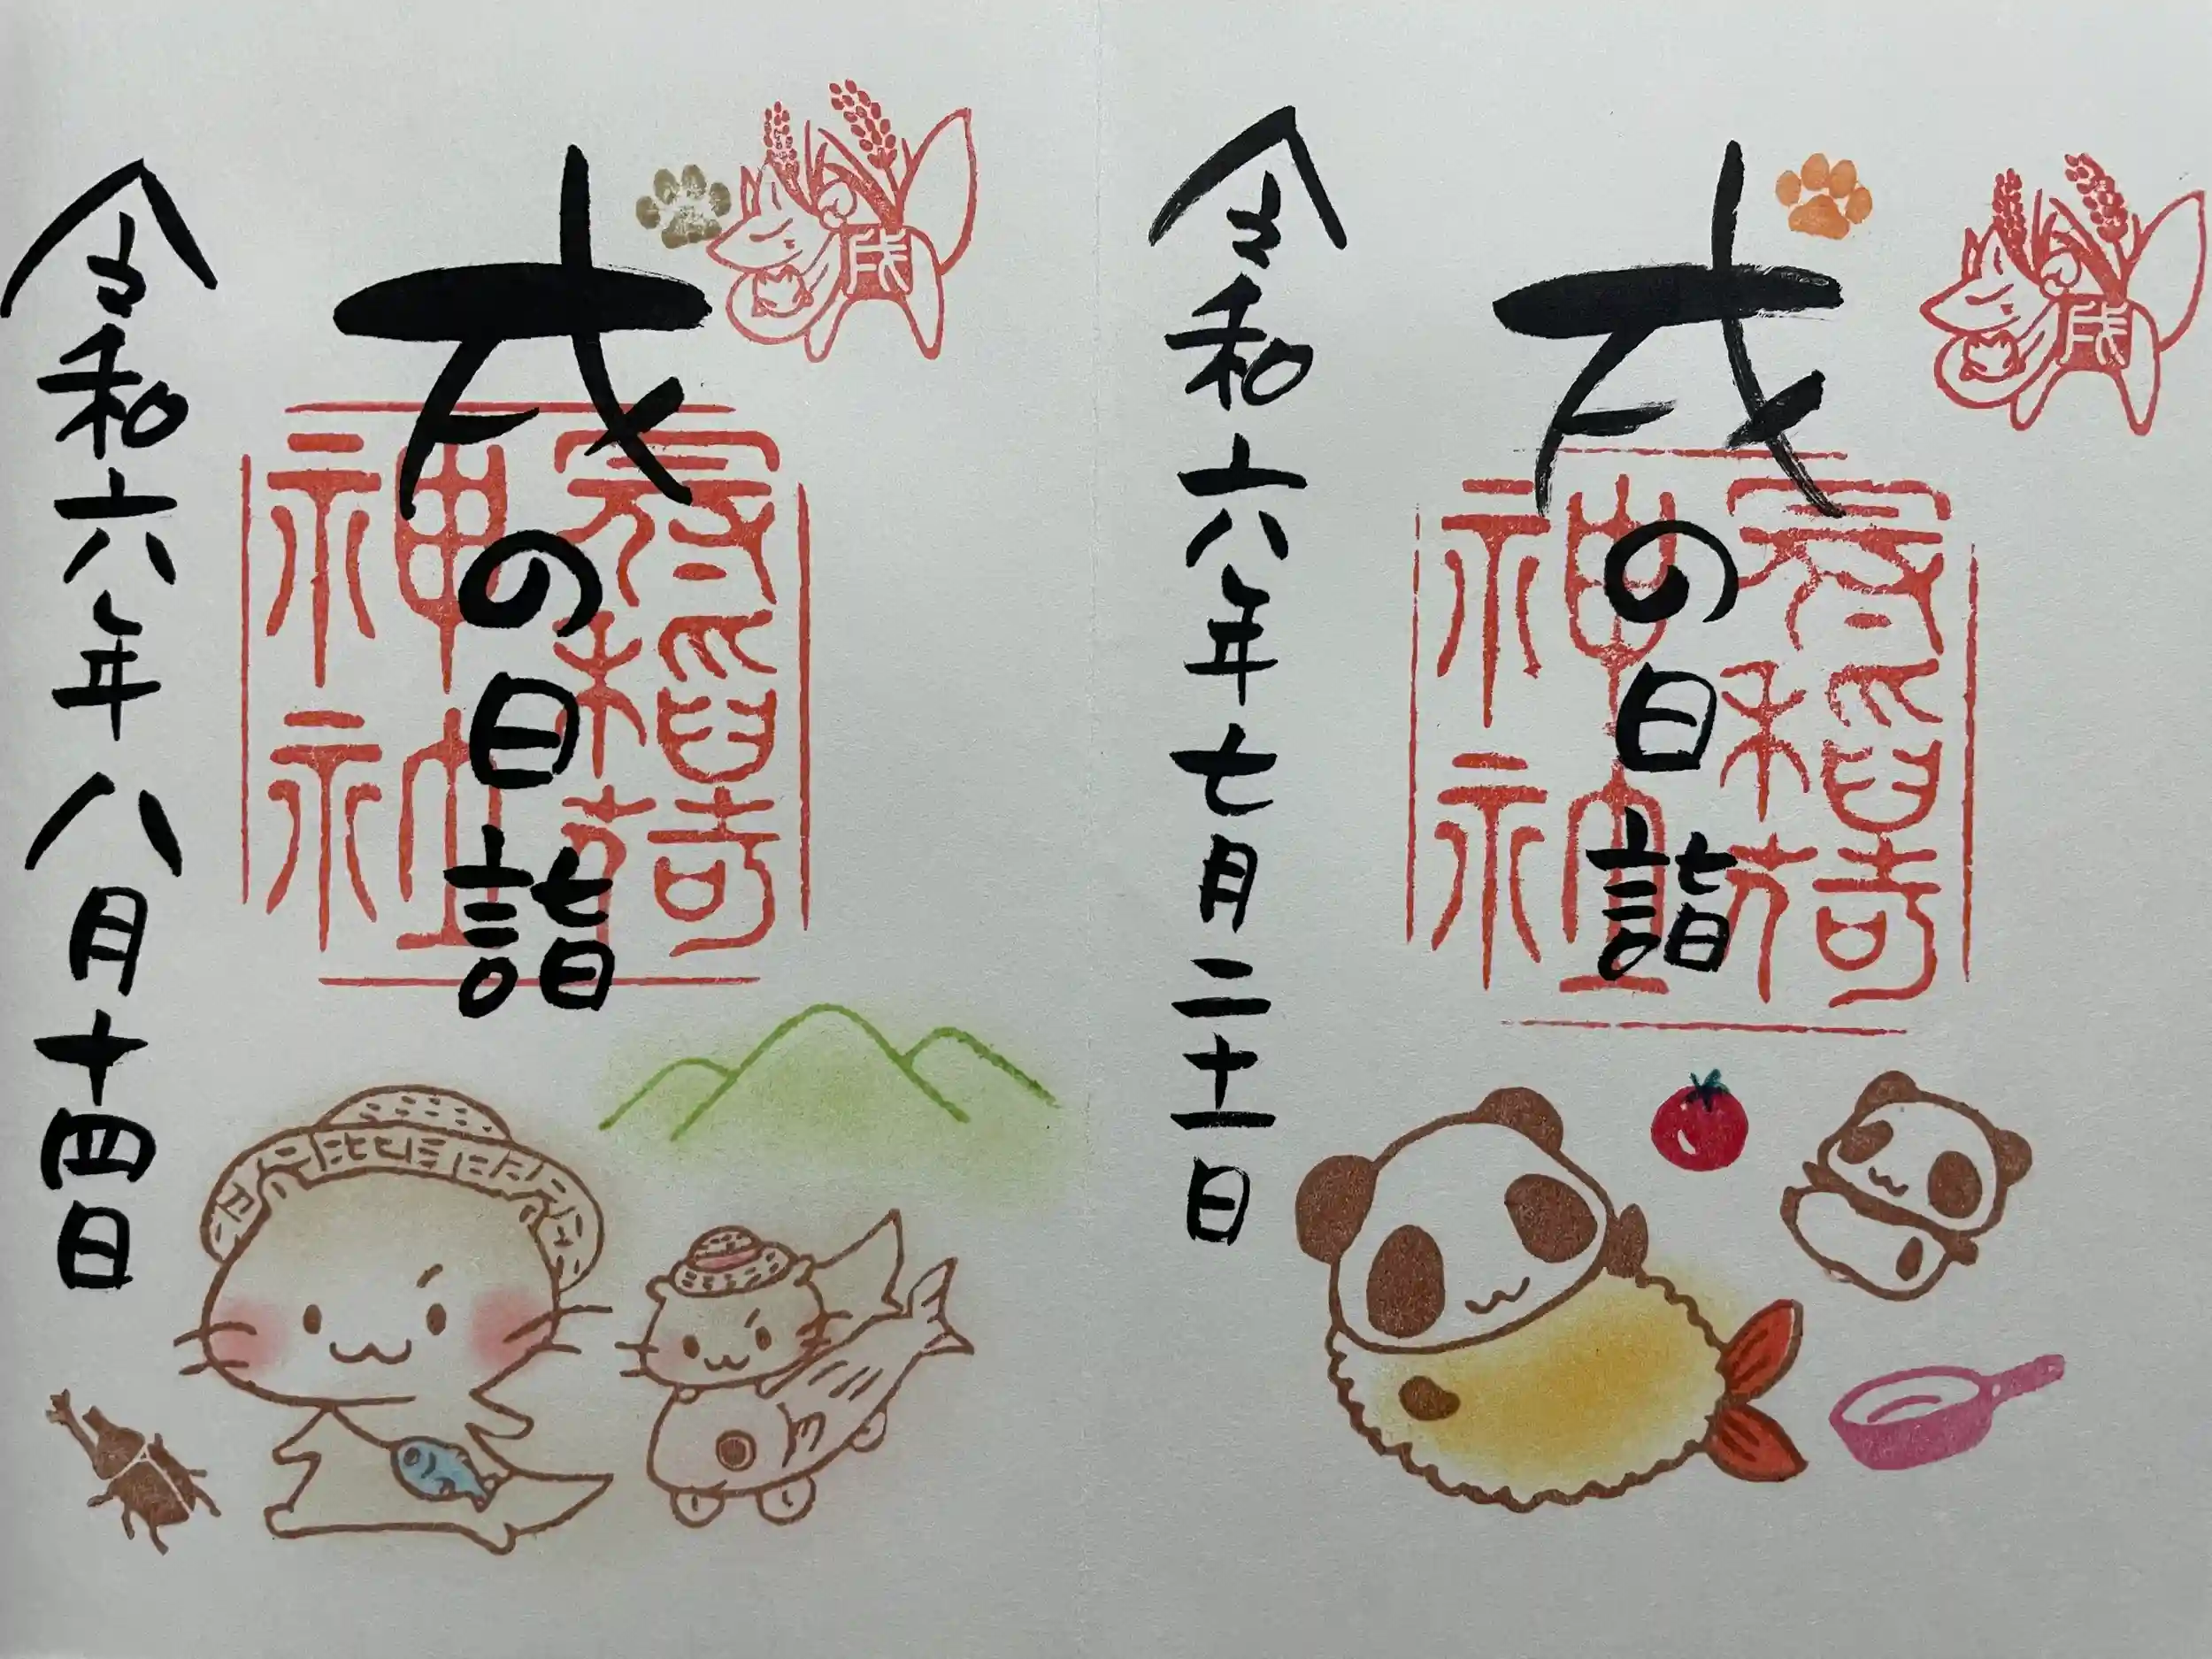 戌
戌の日詣
冠稲荷
神社
令和六年七月二十一日
戌
戌の日詣
冠稲荷
神社
令和六年八月十四日